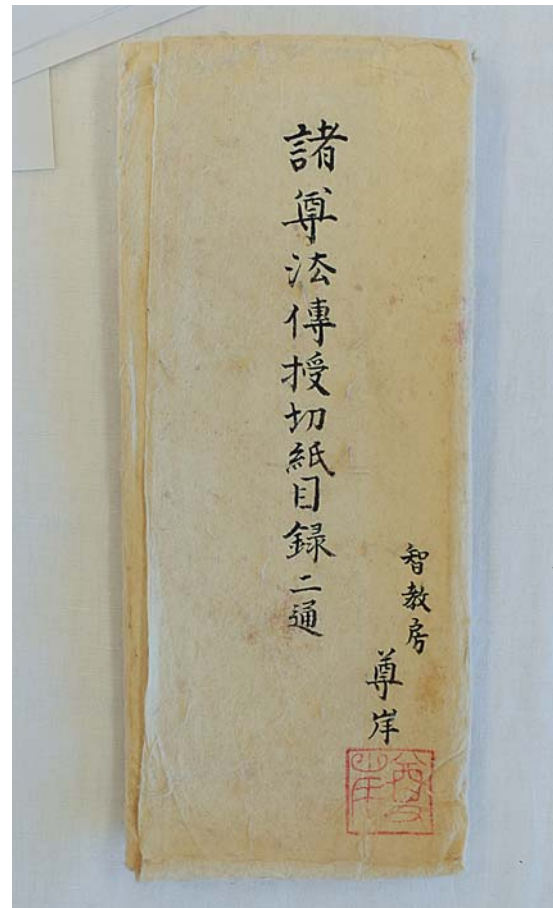 諸尊法傳授切紙目録二通
智教房
尊岸
尊岸